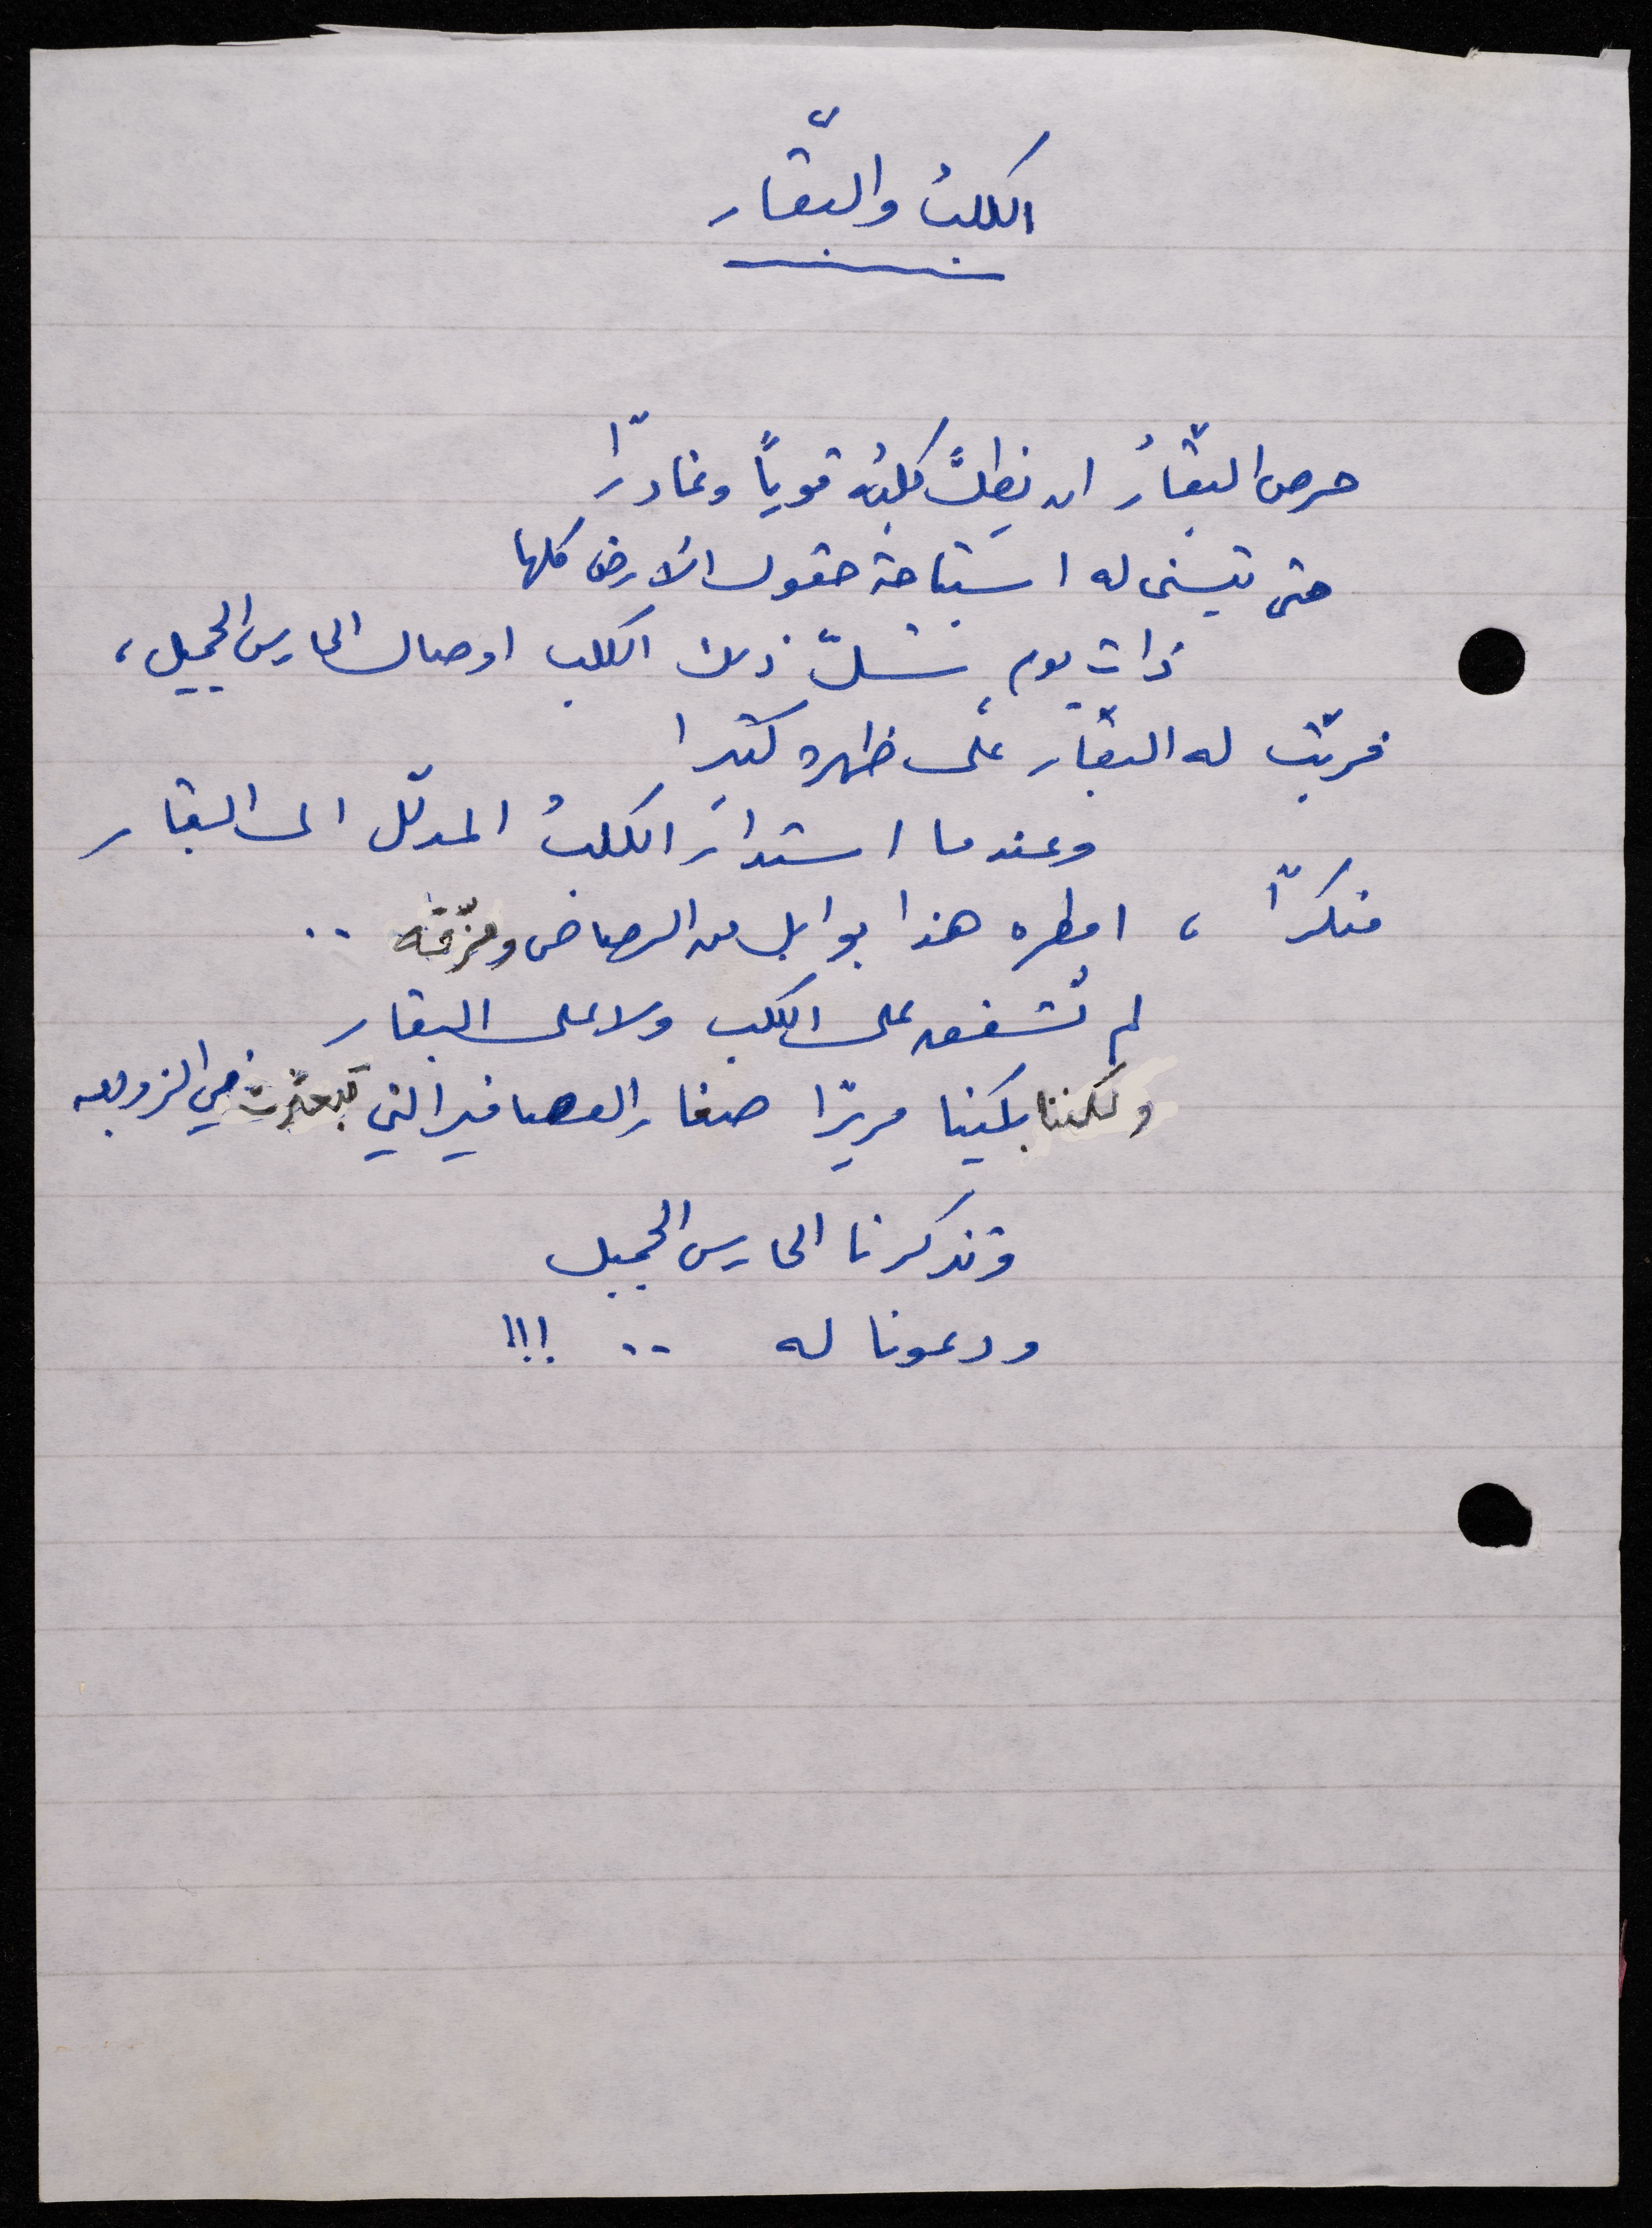 الكلبُ والبقّار
حرص البقّارُ ان يظلَّ كلبُه قوياً وغادرًا
حتى يتسنى له استباحة حقول الأرض كلها
ذات يوم شلّ ذلك الكلب اوصال الحارس الجميل،
فربّت له البقّار على ظهره كثيرا
وعندما استدارَ الكلبُ المدلّل الى البقار
منكرًا ، امطره هذا بوابل من الرصاص ومزّقه ..
لم نُشفق على الكلب ولا على البقار
ولكننا بكينا مريرًا صغار العصافير التي تبعثرت في الزوبعه
وتذكرنا الحارس الجميل
ودعونا له .. !!!